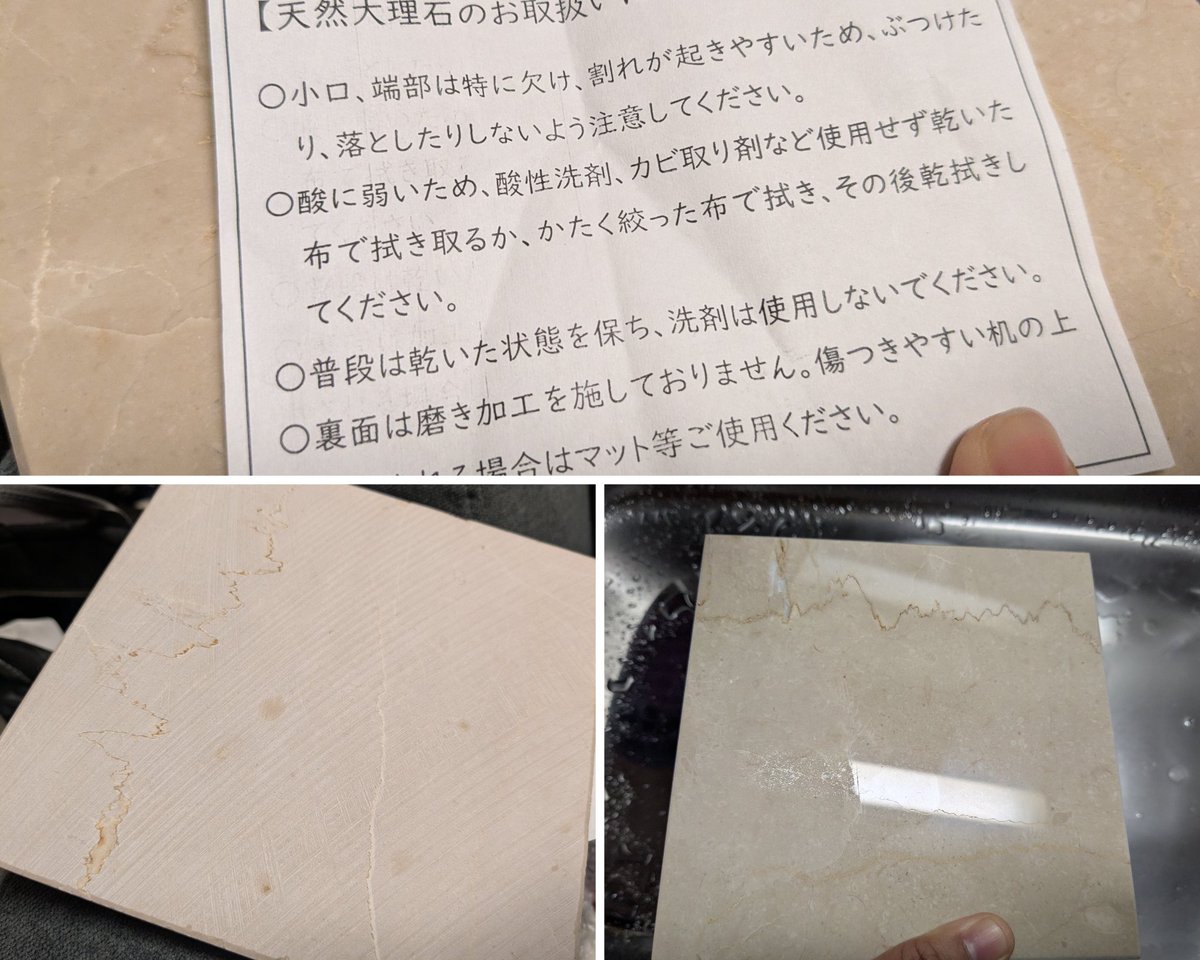 【天然大理石のお取扱い
○小口、端部は特に欠け、割れが起きやすいため、ぶつけた
り、落としたりしないよう注意してください。
○酸に弱いため、酸性洗剤、カビ取り剤など使用せず乾いた
布で拭き取るか、かたく絞った布で拭き、その後乾拭きし
てください。
○普段は乾いた状態を保ち、洗剤は使用しないでください。
○裏面は磨き加工を施しておりません。傷つきやすい机の上
れる場合はマット等ご使用ください。